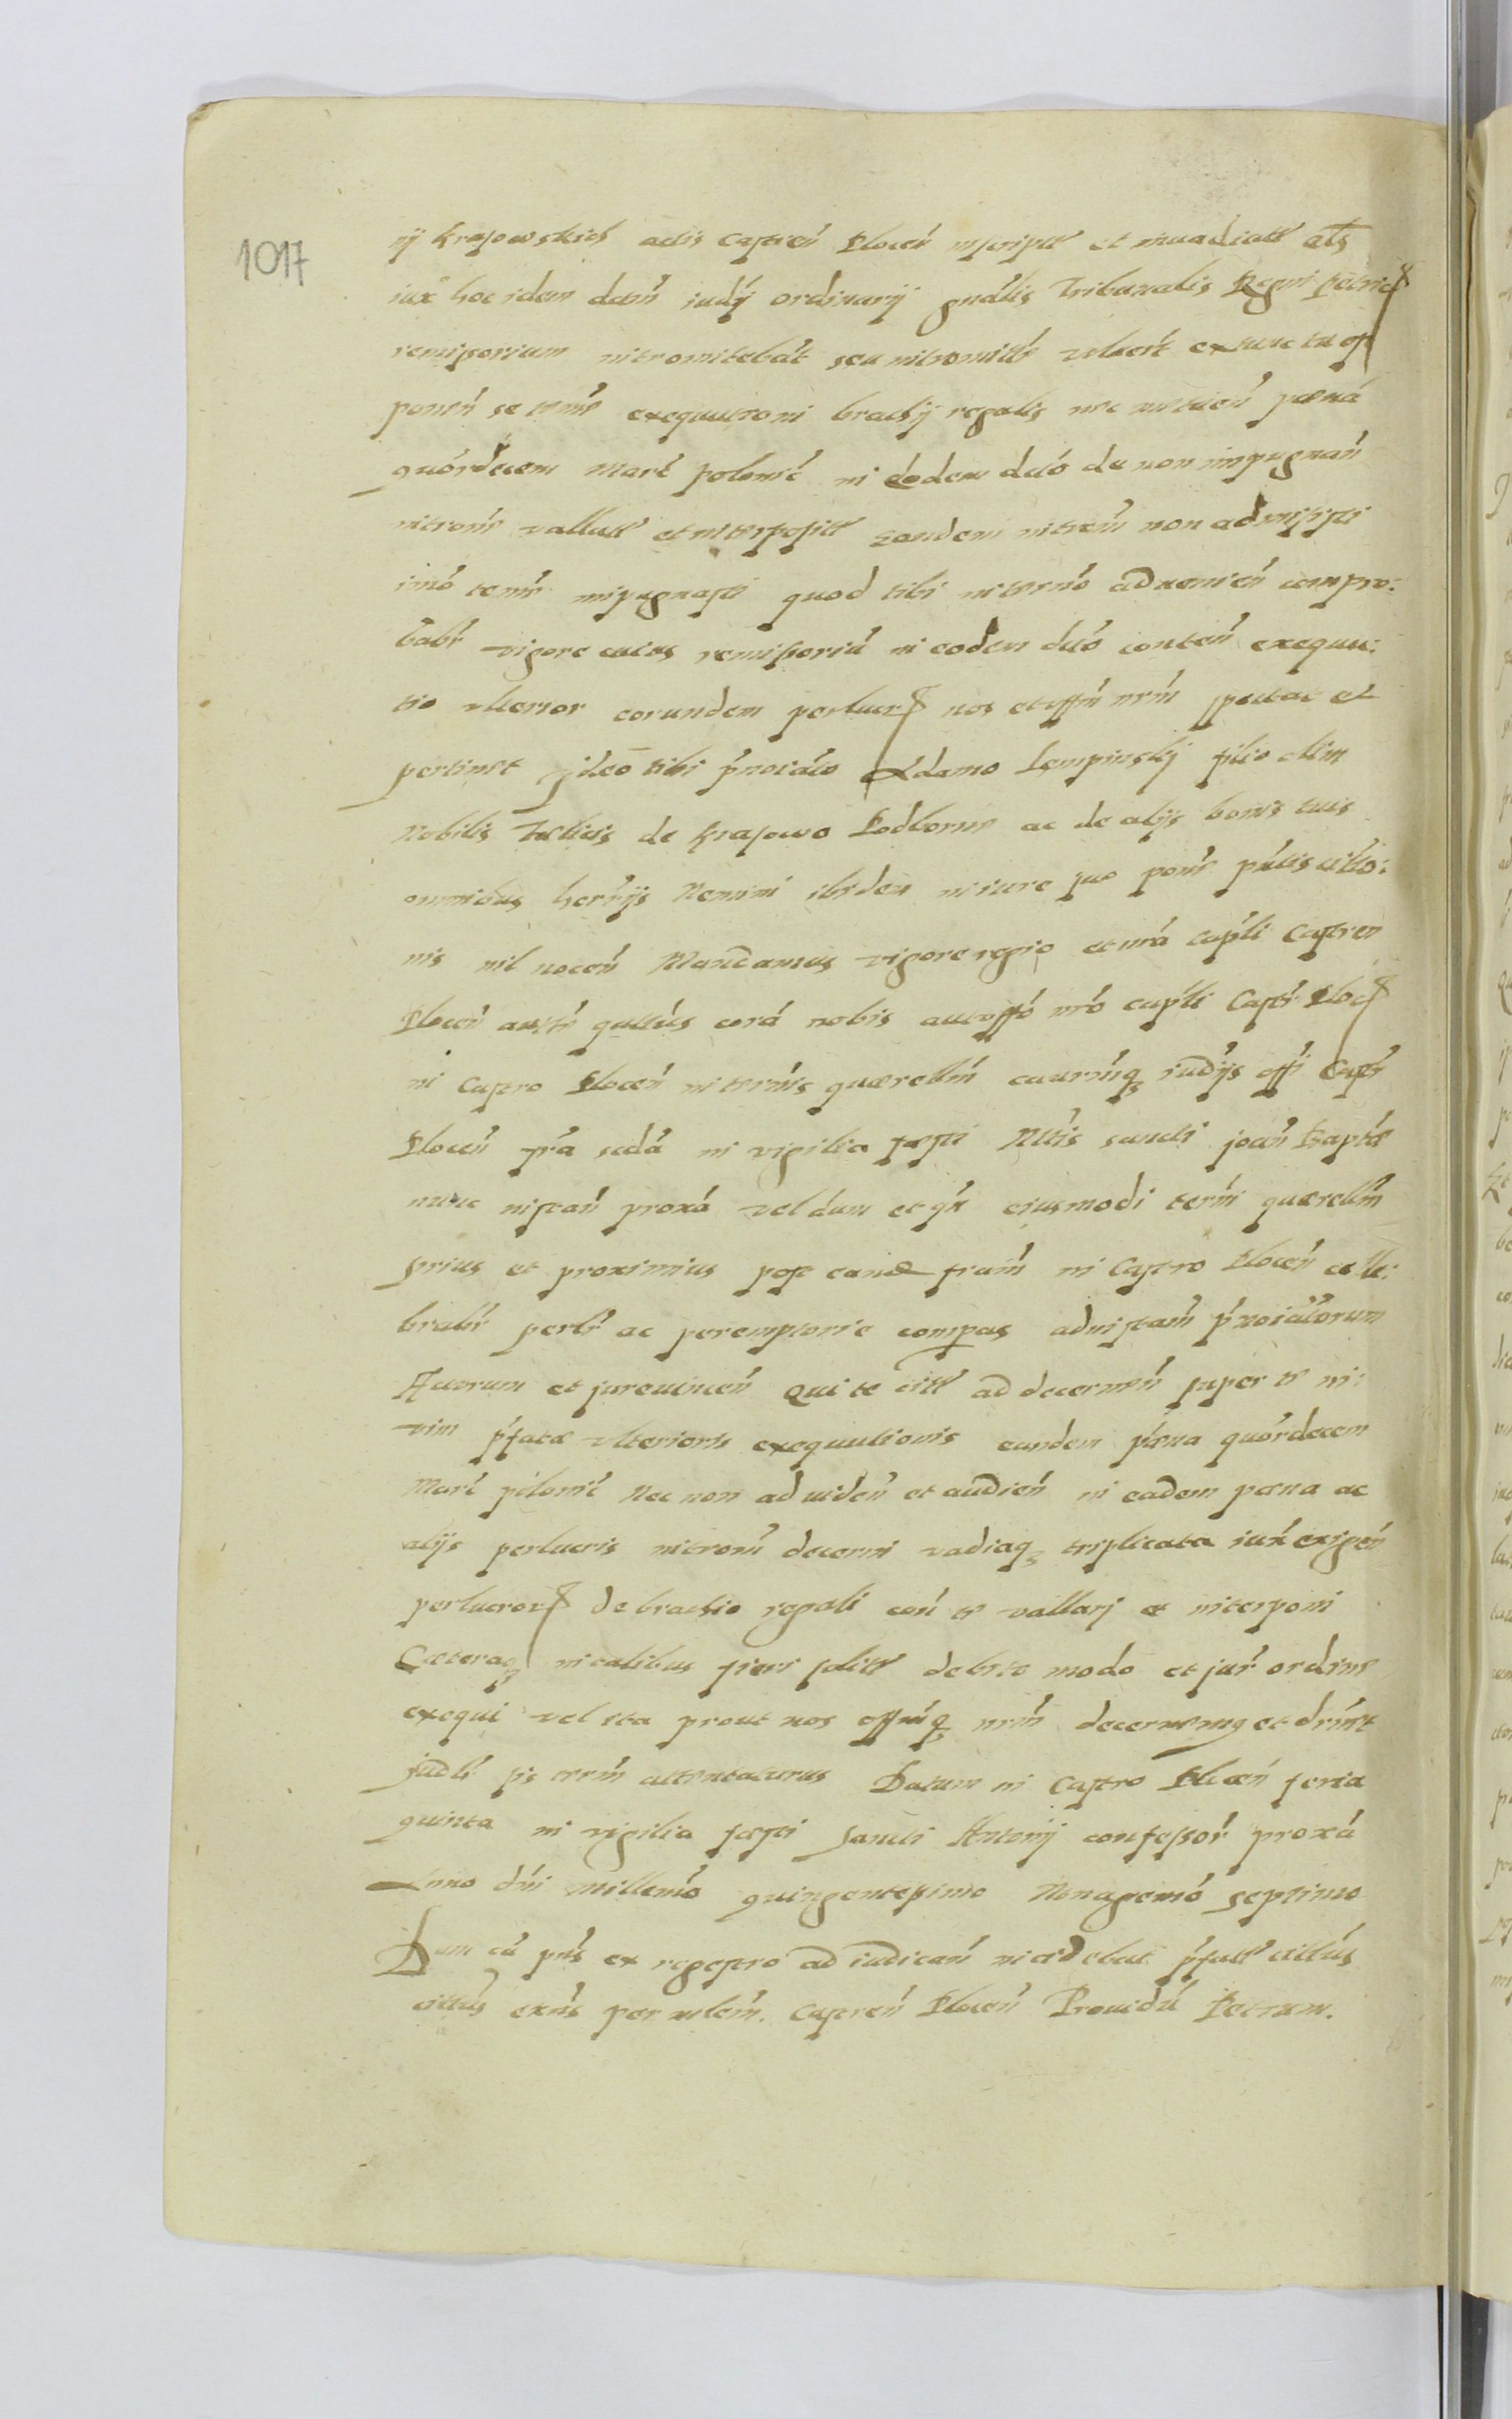 1017
ij Krasowskich actis Castren̄ Plocen̄ inscript et invadiatt als
iux hoc idem decrm̄ iudij ordinarij gnâlis Tribunalis Regni Petric
remissorium intromitebāt seu intromitt voluerit extunc tu op
ponen̄ se tem̄e exequutioni brachij regalis nec metuen̄ pænâ
quórdecem Marć polonić in eodem dctó de non impugnan̄
intrōne vallatt et interposit eandem intrōm non admisisti
imó tem̄e impugnasti quod tibi in term̄o advenien̄ compro:
babr̄ vigore cuius remissoriū in eodem dctó conten̄ exequu:
tio ulterior eorundem perlucr nos et offm̄ nrm̄ spectat et
pertinet ideo tibi p̄noiâto Adamo Lempinskj filio olim
Nobilis Felicis de Krasowo Podborne ac de alijs bonis tuis
omnibus herr̄ijs Nemini ibidem in iure suo pons p̄ntis citto:
nis nil nocen̄ Mandamus vigore regio et nrâ capli Castren
Plocen̄ autte quatt̄us corâ nobis aut offó nró capli Castr Ploc
in Castro Plocen̄ in term̄is quærellm̄ eaurm̄q iudijs offi Castr
Plocen̄ fr̄a scdâ in vigilia festi Nttis sancti joan̄ Baptæ
nunc instan̄ proxâ vel dum et qn̄ eiusmodi term̄i quærellm̄
prius et proximius post eand fram̄ in Castro Plocen̄ cele:
brabr̄ perlr̄ ac peremptorie compas ad instam̄ p̄noiâtorum
Actorum et jurevincen̄ Qui te citt ad decernen̄ super te in:
vim p̄fatæ ulterioris exequutionis eandem pæna quórdecem
Marć polonić Nec non ad viden̄ et audien̄ in eadem pæna ac
alijs perlucris intrōm decerni vadiaq triplicata iux exigen̄
perlucror de brachio regali con̄ te vallarj et interponi
Cæteraq in talibus fieri solitt debito modo et jur̄ ordine
exequi vel ita prout nos offm̄q nrm̄ decernemus et drīnt
judlr̄ sis term̄ attentaturus Datum in Castro Plocen̄ feria
quinta in vigilia festi Sancti Antonij confessor̄ proxâ
Anno dn̄i millem̄o quingentesimo Nonagem̄o septimo
Dum câ pn̄s ex regestro ad iudican̄ incidebat p̄fatt cittus
cittus exn̄s per mlem. Castren̄ Plocen̄ Providū Petrum.